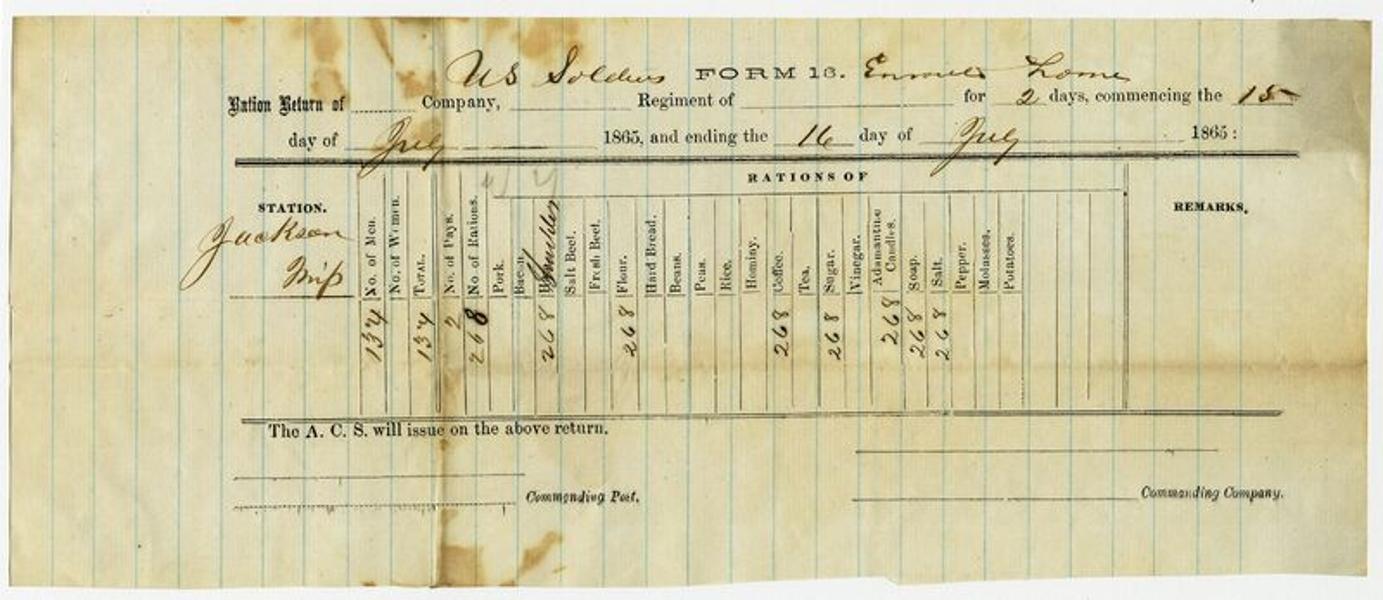 US Soldiers FORM 13. Enroute home
Ration Return of Company, Regiment of for 2 days, commencing the 15
day of July 1865, and ending the 16 day of July 1865:
RATIONS OF
STATION.
No. of Men.
No. of Women.
TOTAL.
No. of Days.
No. of Rations.
Pork.
Bacon.
Shoulder
Salt Beef.
Fresh Beef.
Flour.
Hard Bread.
Beans.
Peas.
Rice.
Hominy.
Coffee.
Tea.
Sugar.
Vinegar.
Adamantine Candles.
Soap.
Salt.
Pepper.
Molasses.
Potatoes.
REMARKS.
Jackson
Miss
134 134 2 268 268 268 268 268 268 268 268
The A. C. S. will issue on the above return.
Commanding Post.
Commanding Company.